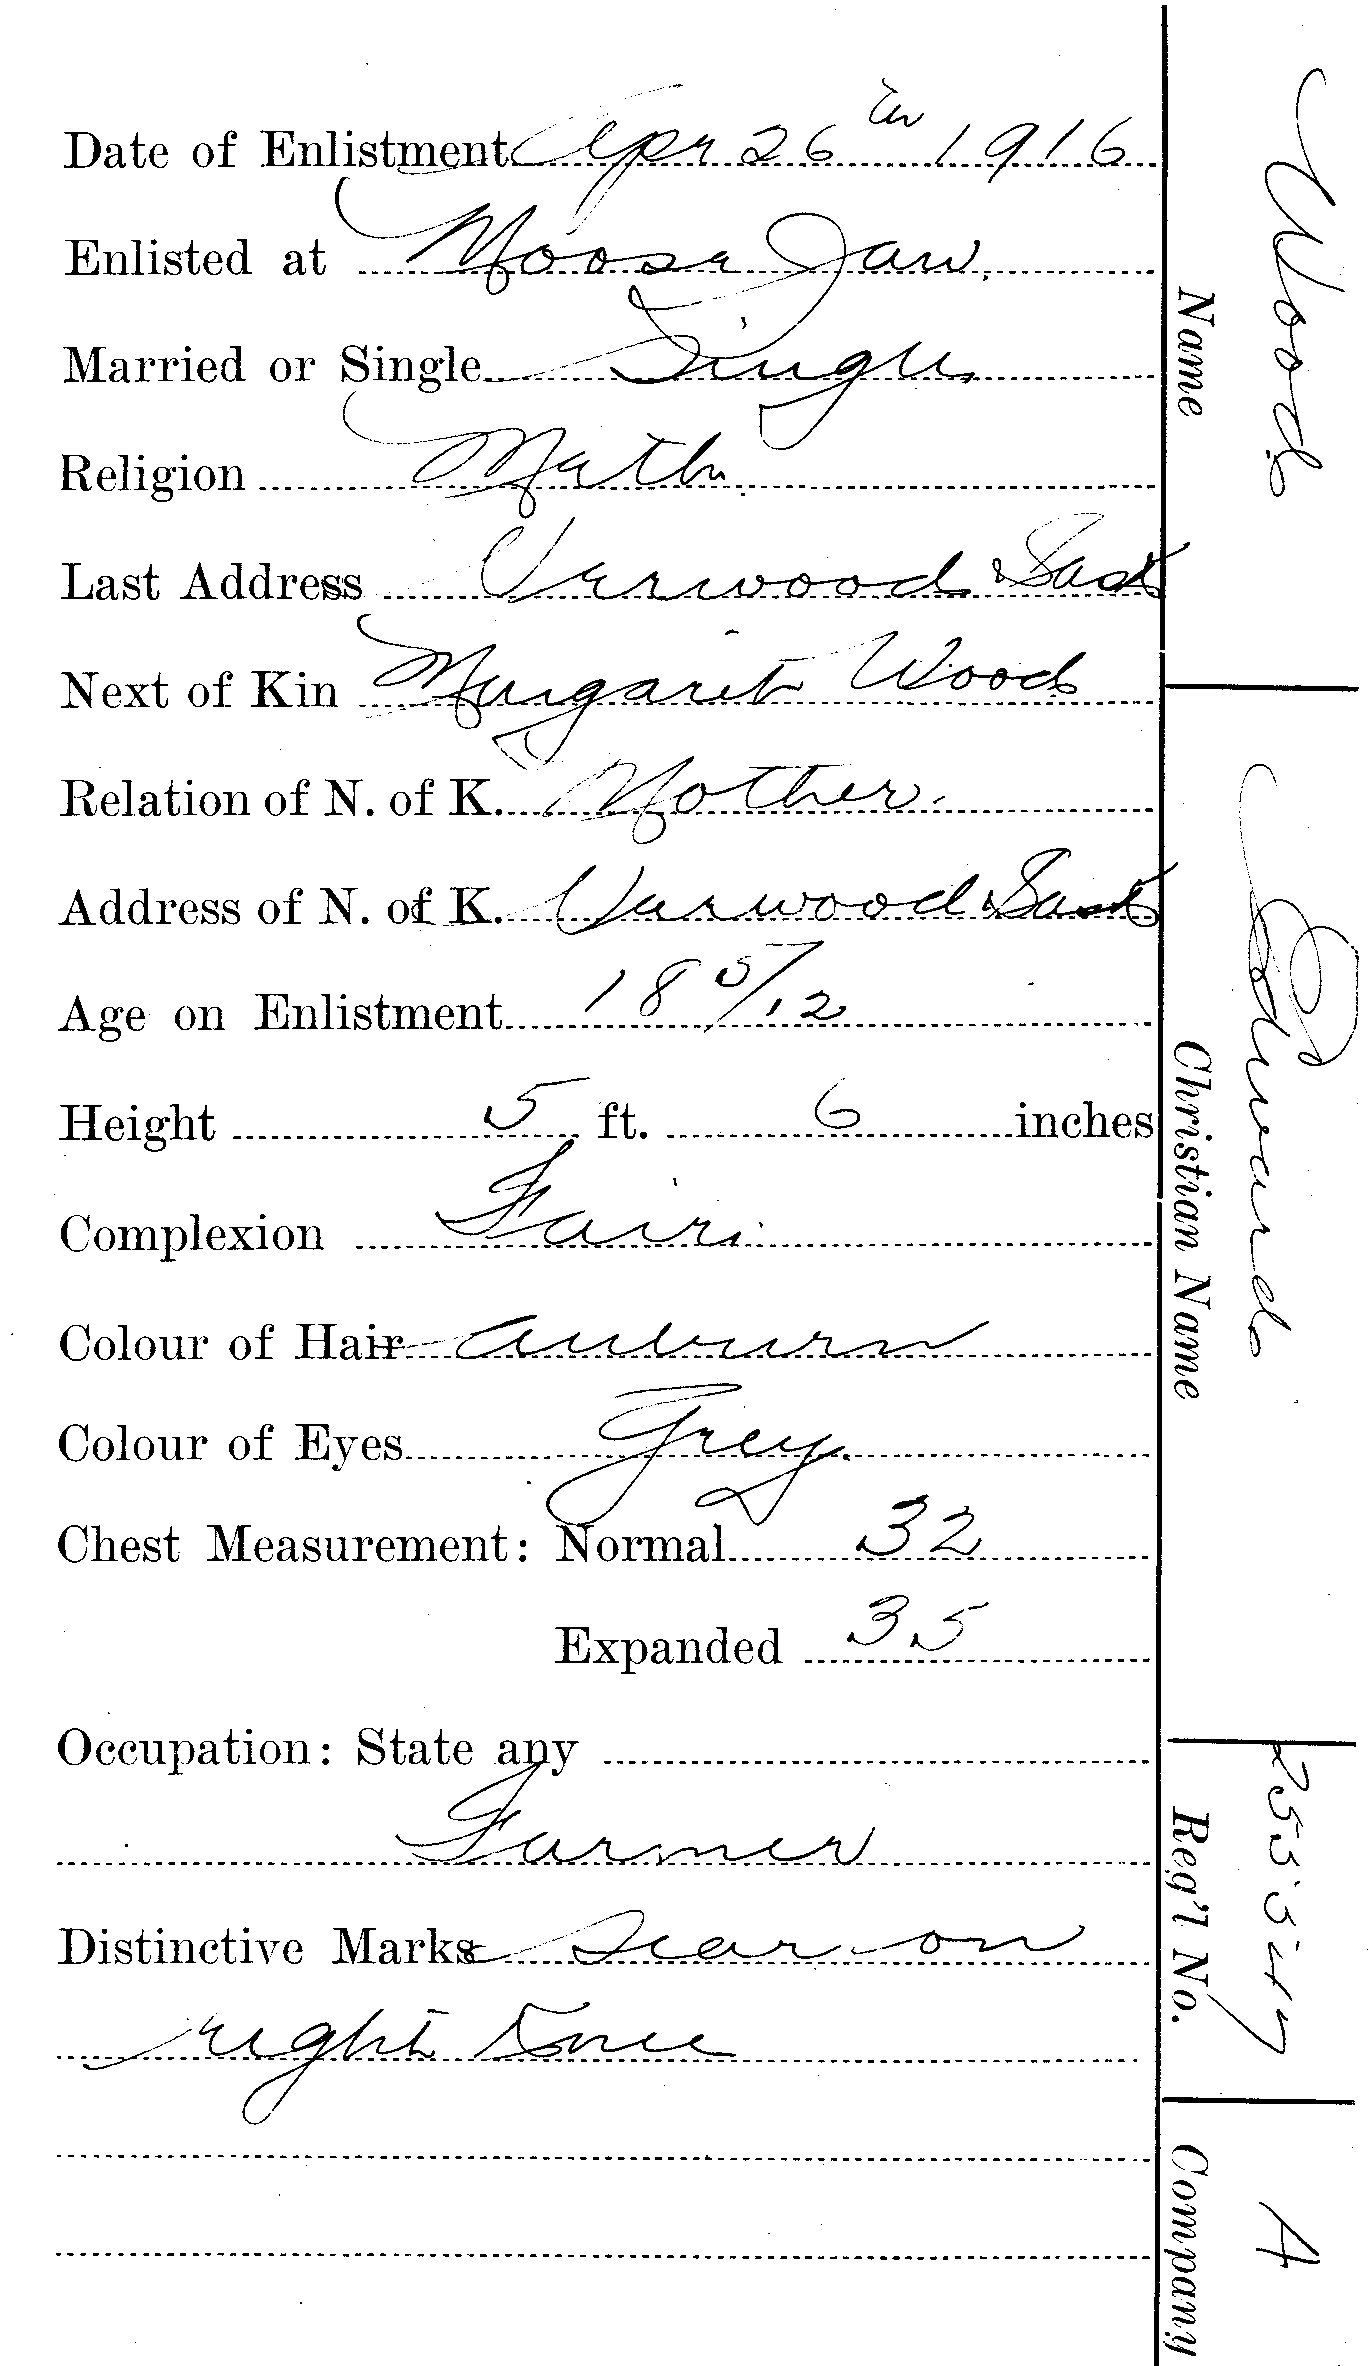 Date of Enlistment Apr 26th 1916
Enlisted at Moose Jaw.
Married or Single Single
Religion Meth.
Last Address Verwood Sask
Next of Kin Margaret Wood
Relation of N. of K. Mother.
Address of N. of K. Verwood Sask
Age on Enlistment 18 5/12
Height 5 ft. 6 inches
Complexion Fair.
Colour of Hair auburn
Colour of Eyes Grey.
Chest Measurement: Normal 32
Expanded 35
Occupation: State any
Farmer
Distinctive Marks Scar on
right Knee
Name Wood
Christian Name Edward
Reg'l No.
Company A